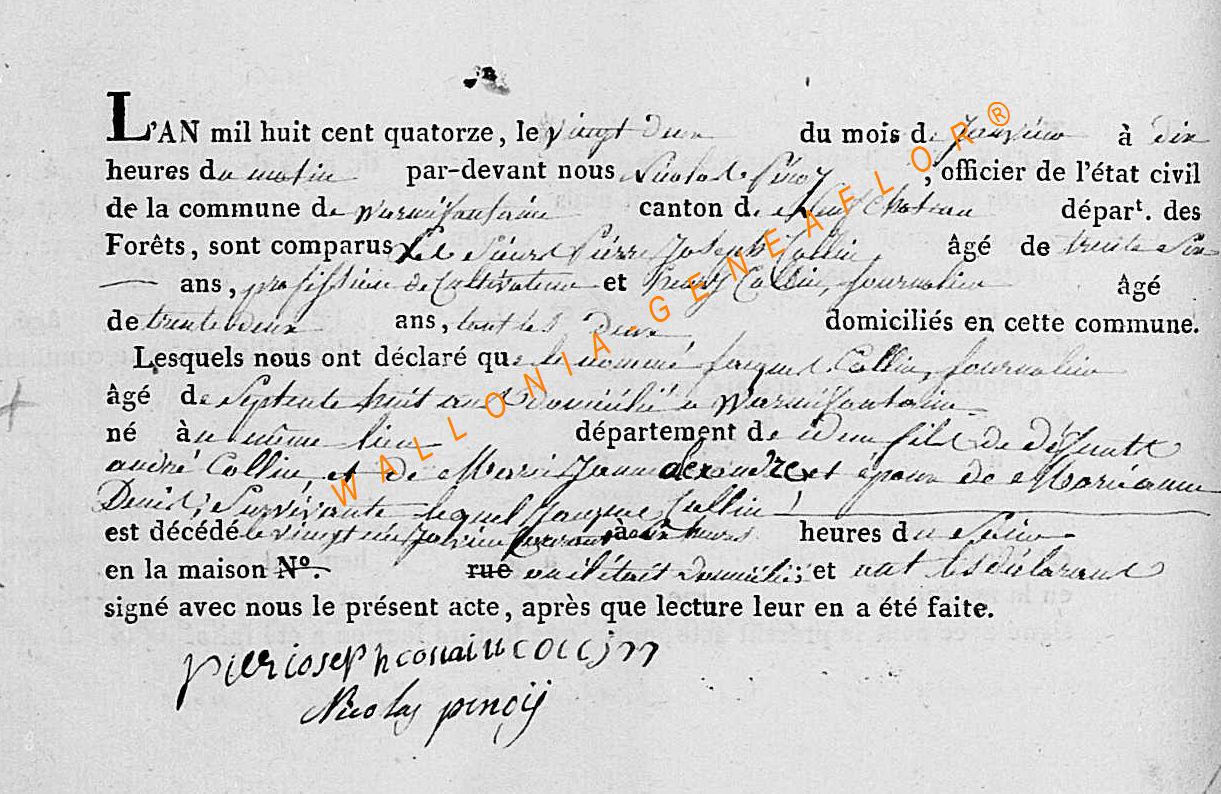 L'AN mil huit cent quatorze, le vingt deux du mois de janvier à dix
heures du matin par-devant nous Nicolas Pinoy, officier de l'état civil
de la commune de Warmifontaine canton de Neufchateau départ. des
Forêts, sont comparus Les Sieurs Pierre Joseph Collin âgé de trente six
ans, profession de Cultivateur et Henry Collin, journalier âgé
de trente deux ans, tout les deux domiciliés en cette commune.
Lesquels nous ont déclaré que le nommé Jacques Collin, journalier
âgé de Septente huit ans Domicilié a Warmifontaine
né au même lieu département de idem fils de défunts
andré Collin, et de Marie Jeanne alexandre et époux de Marianne
Denis, Survivante lequel Jacque Collin
est décédé le vingt un janvier à six heures heures du Soir
en la maison N°. rue ou il étoit Domicilié; et ont les déclarans
signé avec nous le présent acte, après que lecture leur en a été faite.
pierioseph collin
Nicolas pinoÿ
WALLONIA-GENEAFLOR®